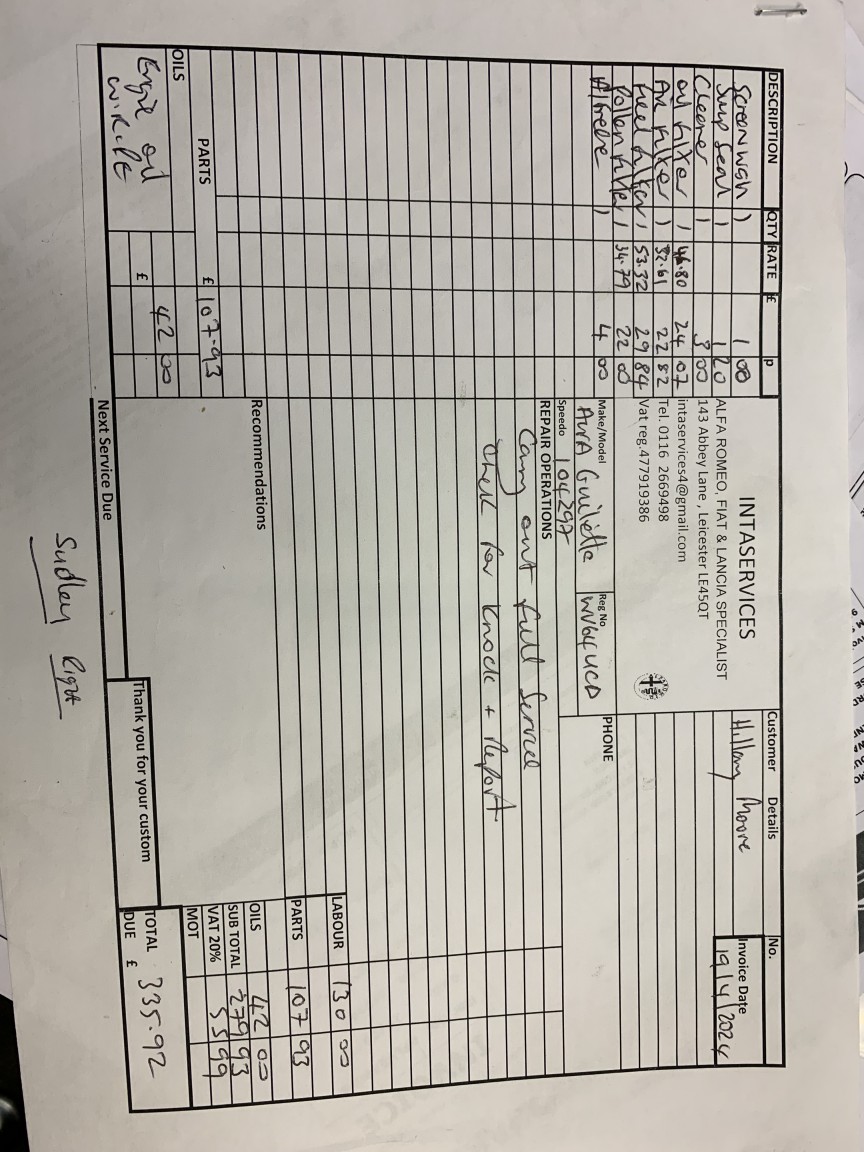 DESCRIPTION QTY RATE £ p
Screenwash 1 1 00
Sump Seal 1 1 20
Cleaner 1 3 00
Oil Filter 1 46.80 24 07
Air Filter 1 32.61 22 82
Fuel Filter 1 53.32 29 84
Pollen Filter 1 34.79 22 00
A/freeze 1 4 00
PARTS £ 107-93
OILS
Engine oil 42 00
£
INTASERVICES
ALFA ROMEO, FIAT & LANCIA SPECIALIST
143 Abbey Lane , Leicester LE45QT
intaservices4@gmail.com
Tel. 0116 2669498
Vat reg.477919386
Make/Model Reg No
Guiliette WV64UCD
Speedo 104297
REPAIR OPERATIONS
Carry out full Service
Check for knock + Report
Recommendations
Next Service Due
Customer Details
Hillary Moore
PHONE
No.
Invoice Date
19/4/2024
LABOUR 130 00
PARTS 107 93
OILS 42 00
SUB TOTAL 279 93
VAT 20% 55 99
MOT
Thank you for your custom
TOTAL
DUE £ 335.92
Right